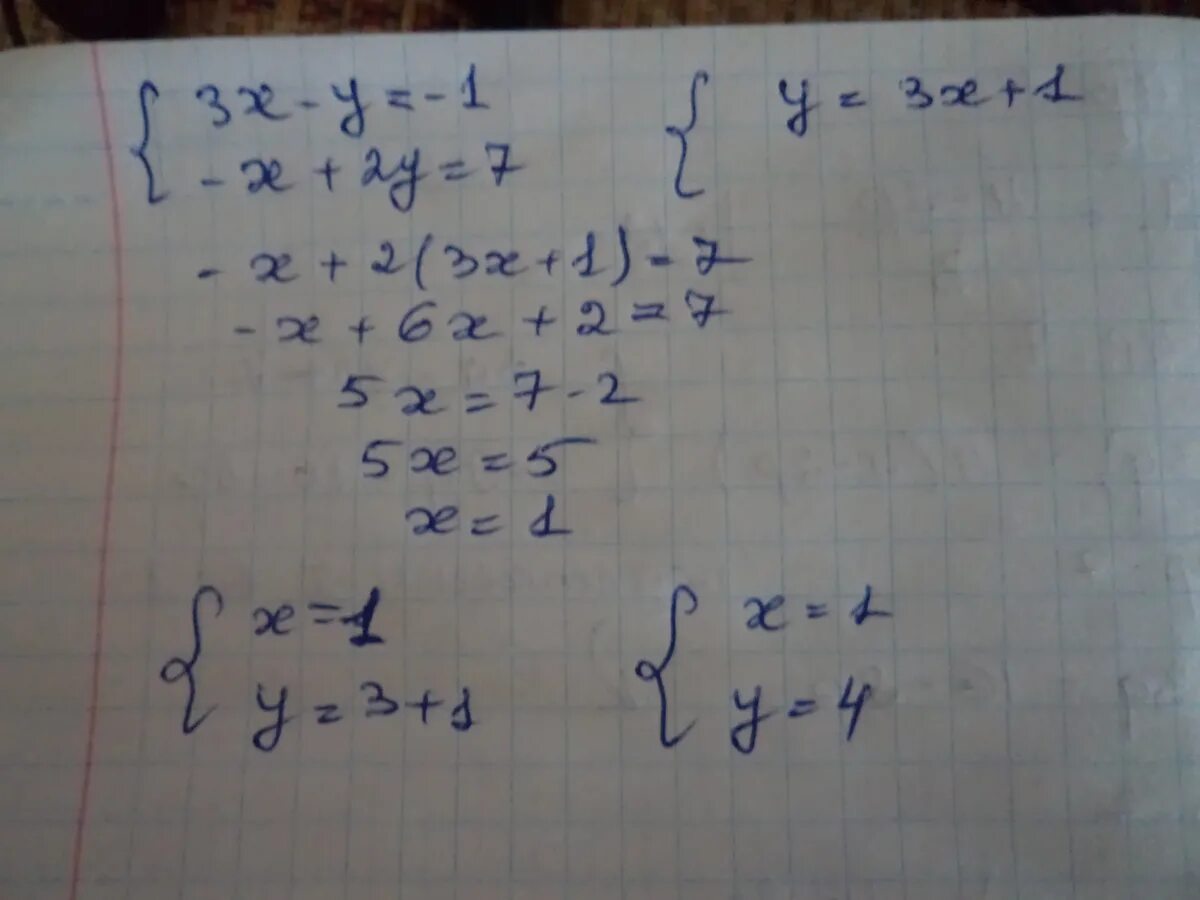 3x - y = -1
-x + 2y = 7
y = 3x + 1
-x + 2(3x + 1) = 7
-x + 6x + 2 = 7
5x = 7 - 2
5x = 5
x = 1
x = 1
y = 3 + 1
x = 1
y = 4